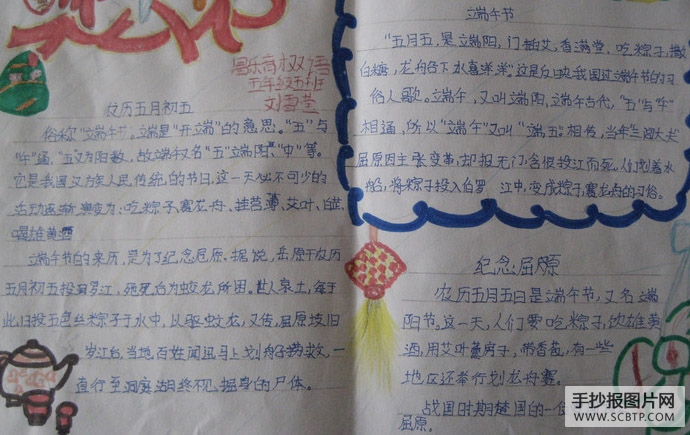 农历五月初五
俗称"端午节"。端是"开端"的意思。"五"与
"午"通,"五"又为阳数,故端午又名"五""端阳""中"等。
它是我国汉族人民传统的节日,这一天必不可少的
活动逐渐演变为:吃粽子,赛龙舟,挂菖蒲,艾叶,
喝雄黄酒
端午节的来历,是为了纪念屈原。据说,屈原于农历
五月初五投汨罗江,死死后为蛟龙所困。世人哀之,每于
此日投五色丝粽子于水中,以驱蛟龙,又传,屈原投汨
罗江后,当地百姓闻讯马上划船捞救,一
直行至洞庭湖终不见屈原的尸体。
昌乐高权双语
五年级五班
端午节
"五月五,是端阳,门插艾,香满堂,吃粽子,撒
白糖,龙船下水喜洋洋"这是反映我国过端午节的习
俗人歌。端午,又叫端阳,端午古代,"五"与"午"
相通,所以"端午"又叫"端五。相传,当年楚国大夫
屈原因主张变革,却报无门,含恨投江而死,人们划着水
船,将粽子投入伯罗 江中,变成粽子,赛龙舟的习俗。
纪念屈原
农历五月五日是端午节,又名端
阳节。这一天,人们要吃粽子,饮雄黄
酒,用艾叶薰房子,带香苞,有一些
地区还举行划龙舟赛。
战国时期楚国的一位
屈原。
手抄报图片网
WWW.SCBTP.COM